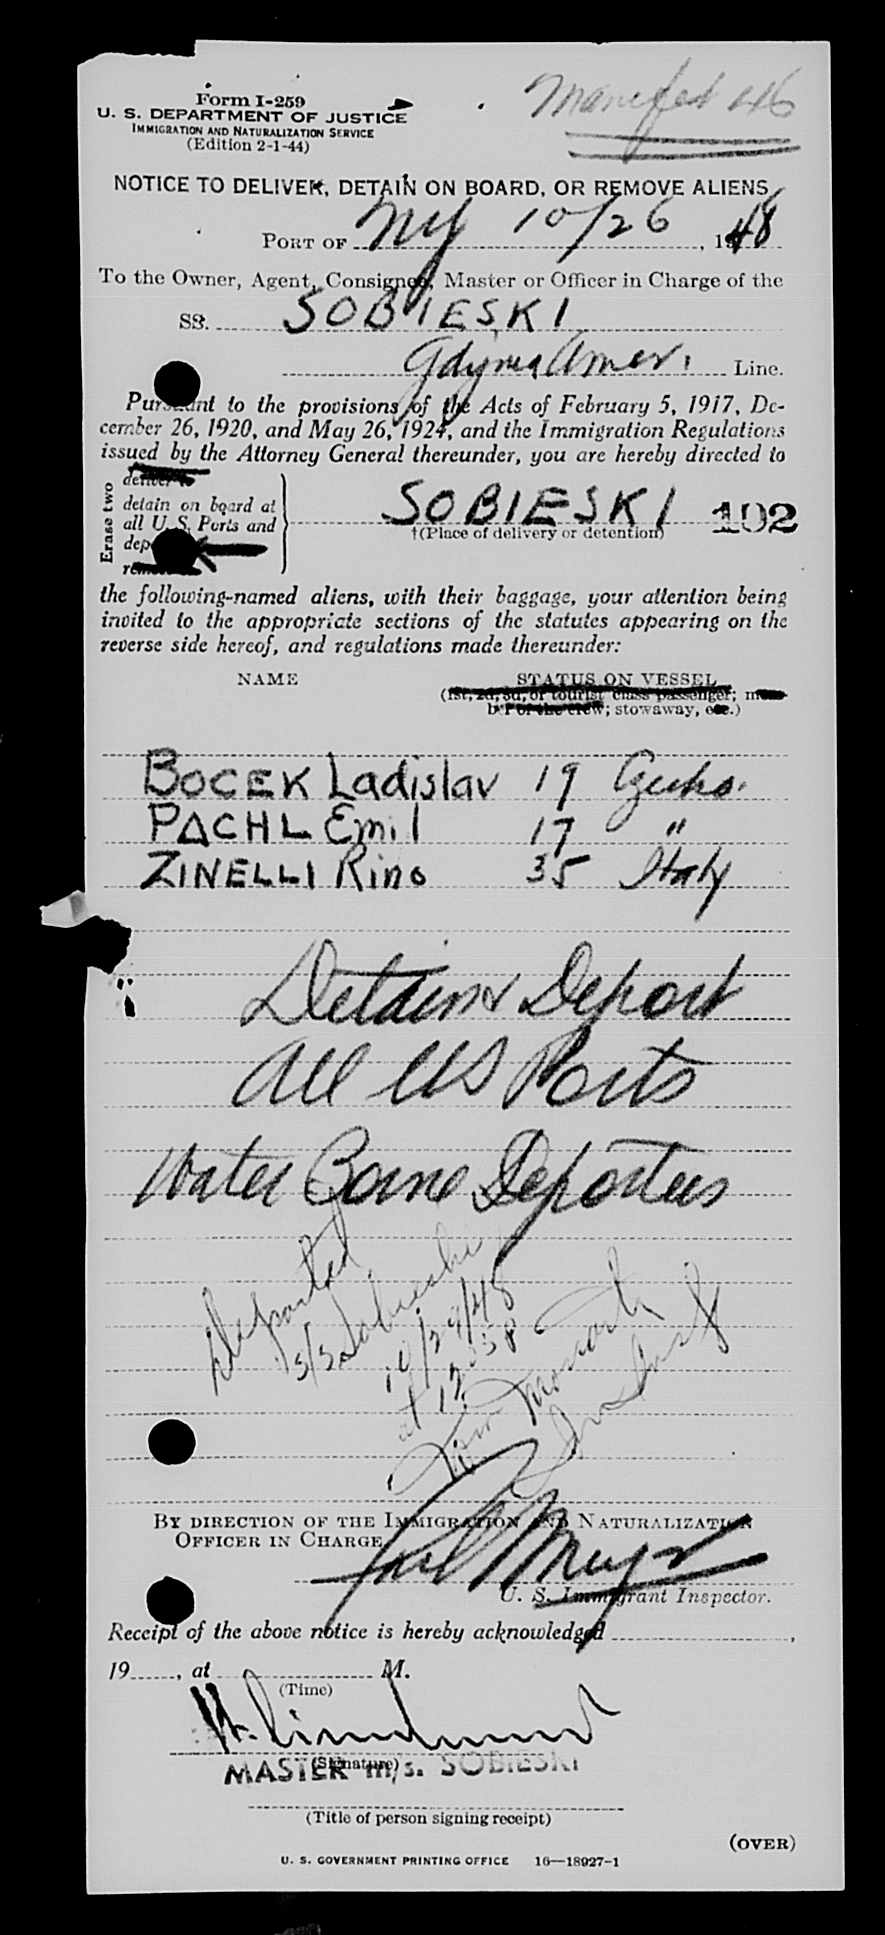 Manifest 46
Form I-259
U. S. DEPARTMENT OF JUSTICE
IMMIGRATION AND NATURALIZATION SERVICE
(Edition 2-1-44)
NOTICE TO DELIVER, DETAIN ON BOARD, OR REMOVE ALIENS
PORT OF NY 10/26, 1948
To the Owner, Agent, Consignee, Master or Officer in Charge of the
SS. SOBIESKI
Gdynia Amer. Line.
Pursuant to the provisions of the Acts of February 5, 1917, De-
cember 26, 1920, and May 26, 1924, and the Immigration Regulations
issued by the Attorney General thereunder, you are hereby directed to
Erase two
deliver to
detain on board at
all U. S. Ports and
dep
SOBIESKI 192
†(Place of delivery or detention)
the following-named aliens, with their baggage, your attention being
invited to the appropriate sections of the statutes appearing on the
reverse side hereof, and regulations made thereunder:
NAME STATUS ON VESSEL
(1st, 2d, 3d, or tourist class passenger; mem-
ber of the crew; stowaway, etc.)
BOCEK Ladislav 19 Czecho.
PACHL Emil 17 "
ZINELLI Rino 35 Italy
Detain & Deport
All US Ports
Water Borne Deportees
Deported
S/S Sobieski
10/29/48
at 12:05 P
BY DIRECTION OF THE IMMIGRATION AND NATURALIZATION
OFFICER IN CHARGE
U. S. Immigrant Inspector.
Receipt of the above notice is hereby acknowledged ,
19 , at M.
(Time)
(Signature)
MASTER m/s. SOBIESKI
(Title of person signing receipt)
(OVER)
U. S. GOVERNMENT PRINTING OFFICE 16—18927-1